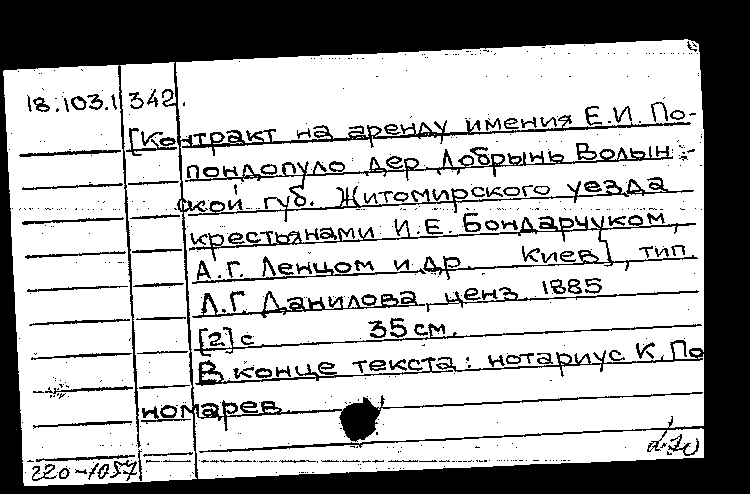 18.103.1 342.
[Контракт на аренду имения Е.И. По-
пондопуло дер. Добрынь Волын-
ской губ. Житомирского уезда
крестьянами И.Е. Бондарчуком,
А.Г. Ленцом и др. Киев], тип.
Л.Г. Данилова, ценз. 1885
[2] с 35 см.
В конце текста: нотариус К. По
номарев.
220-1057